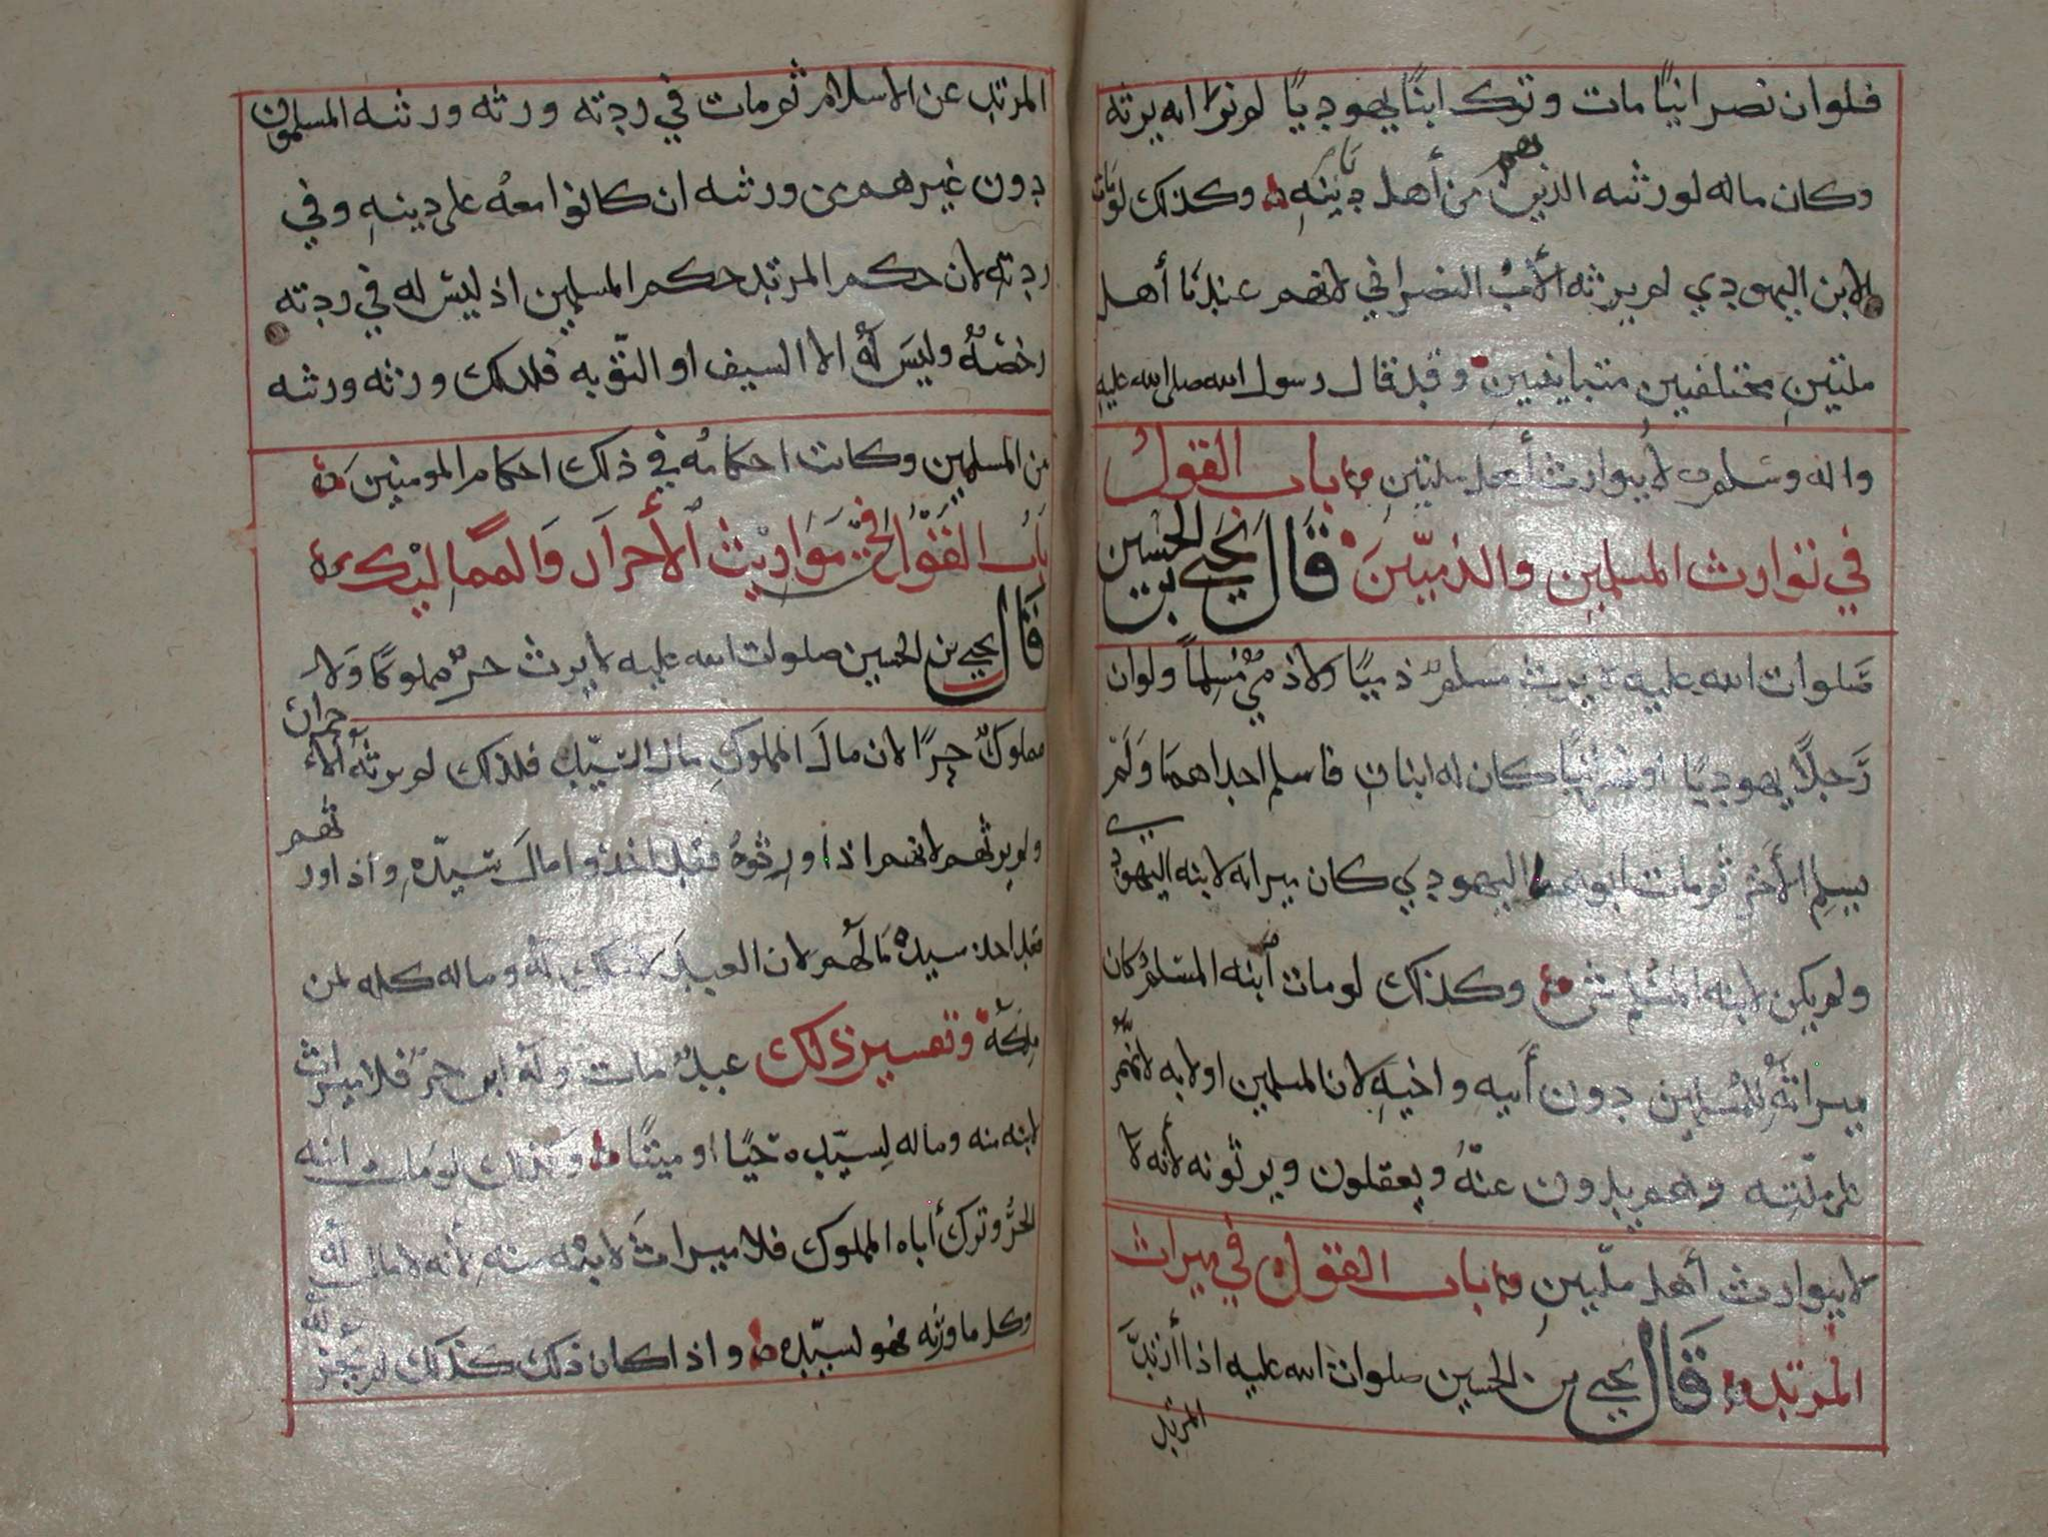 فلو ان نصرانيًا مات وترك ابنًا يهوديًا لم نرا انه يرثه
وكان ماله لورثته الذين هم من أهل دينه وكذلك لو مات
الابن اليهودي لم يرثه الأب النصراني لانهم عندنا أهل
ملتين مختلفين متباينين وقد قال رسول الله صلى الله عليه
واله وسلم لا يتوارث أهل ملتين باب القول
في توارث المسلمين والذميّين قال يحيى بن الحسين
صلوات الله عليه لا يرث مسلم ذميًا ولا ذمي مسلمًا ولو ان
رجلًا يهوديًا او نصرانيًا كان له ابنان فاسلم احداهما ولم
يسلم الأخر ثم مات ابوهما اليهودي كان ميراثه لابنه اليهودي
ولم يكن لابنه المسلم شي وكذلك لو مات ابنه المسلم كان
ميراثه للمسلمين دون أبيه واخيه لان المسلمين اولا به لانهم
على ملته وهم يدون عنه ويعقلون ويرثونه لأنه لا
لا يتوارث أهل ملّتين باب القول في ميراث
المرتد قال يحيى بن الحسين صلوات الله عليه اذا أرتدّ
المرتد
المرتد عن الاسلام ثم مات في ردته ورثه ورثته المسلمون
دون غيرهم من ورثته ان كانوا معه على دينه وفي
ردته لان حكم المرتد حكم المسلمين اذ ليس له في ردته
رخصة وليس له الا السيف او التّوبه فلذلك ورثه ورثته
من المسلمين وكانت احكامه في ذلك احكام المومنين
باب القول في مواريث الأحرار والمماليك
قال يحيى بن الحسين صلوات الله عليه لا يرث حرٌ مملوكًا ولا
مملوكٌ حرًا لان مال المملوك مال السيّد فلذلك لم يرثه الاحرار
ولم يرثهم لانهم اذا ورثوه فقد اخذوا مال سيّده واذا ورثهم
فقد اخذ سيده مالهم لان العبد لا ملك له وماله كله لمن
ملكه وتفسير ذلك عبدٌ مات وله ابن حرّ فلا ميراث
لابنه منه وماله لسيّده حيًا او ميتًا وكذلك لو مات ابنه
الحرّ وترك أباه المملوك فلا ميراث لابيه منه لأنه لا مال له
وكل ما ورثه فهو لسيّده واذا كان ذلك كذلك لم يجز